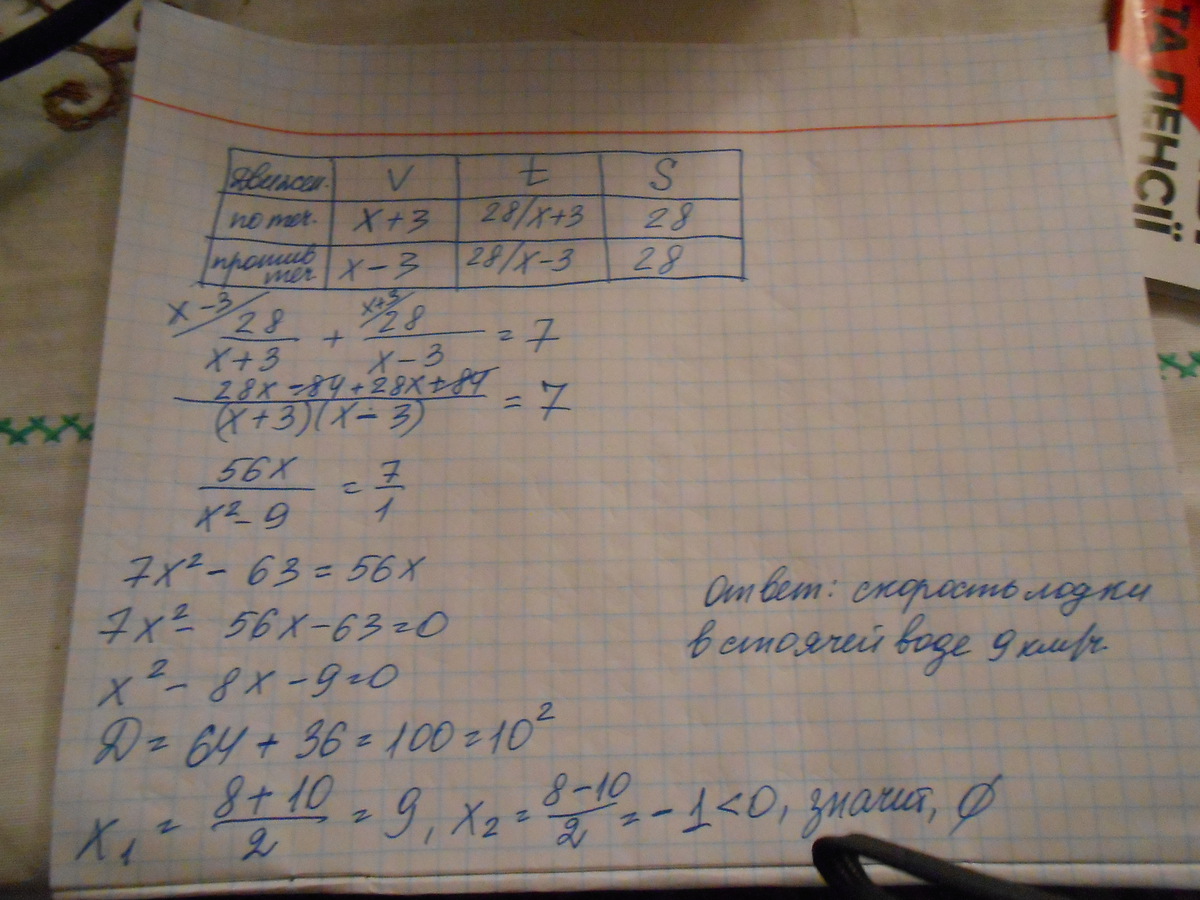 ТА ПЕНСІЇ
Движен. V t S
по теч. x+3 28/x+3 28
против теч. x-3 28/x-3 28
x-3/ 28/x+3 + x+3/ 28/x-3 = 7
28x-84+28x+84/(x+3)(x-3) = 7
56x/x²-9 = 7/1
7x²- 63=56x
7x²- 56x-63=0
x²- 8x-9=0
Д= 64+36=100=10²
x₁ = 8+10/2 = 9, x₂= 8-10/2 = -1<0, значит, ∅
Ответ: скорость лодки
в стоячей воде 9 км/ч.